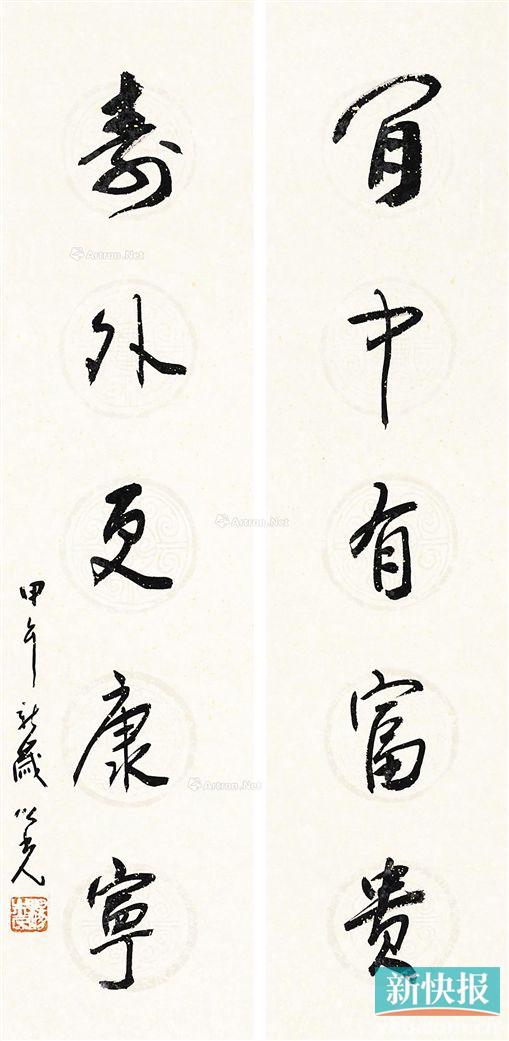 閒中有富貴
壽外更康寧
甲午新歲
Artron.Net
Artron.Net
Artron.Net
新快报